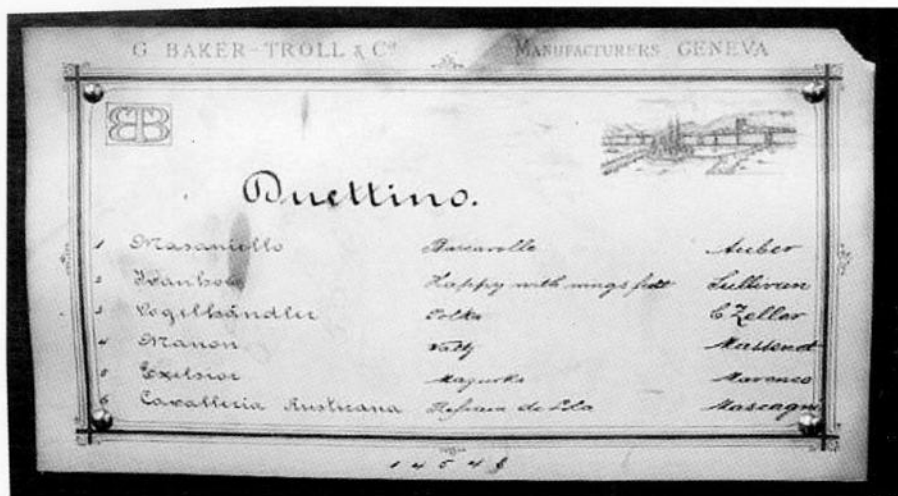 G. BAKER-TROLL & Co MANUFACTURERS GENEVA
BTB
Duettino.
1 Masaniello Barcarolle Auber
2 Ivanhoe Happy with winged feet Sullivan
3 Vogelhändler Polka C Zeller
4 Manon Massenet
5 Excelsior Mazurka Marenco
6 Cavalleria Rusticana Mascagni